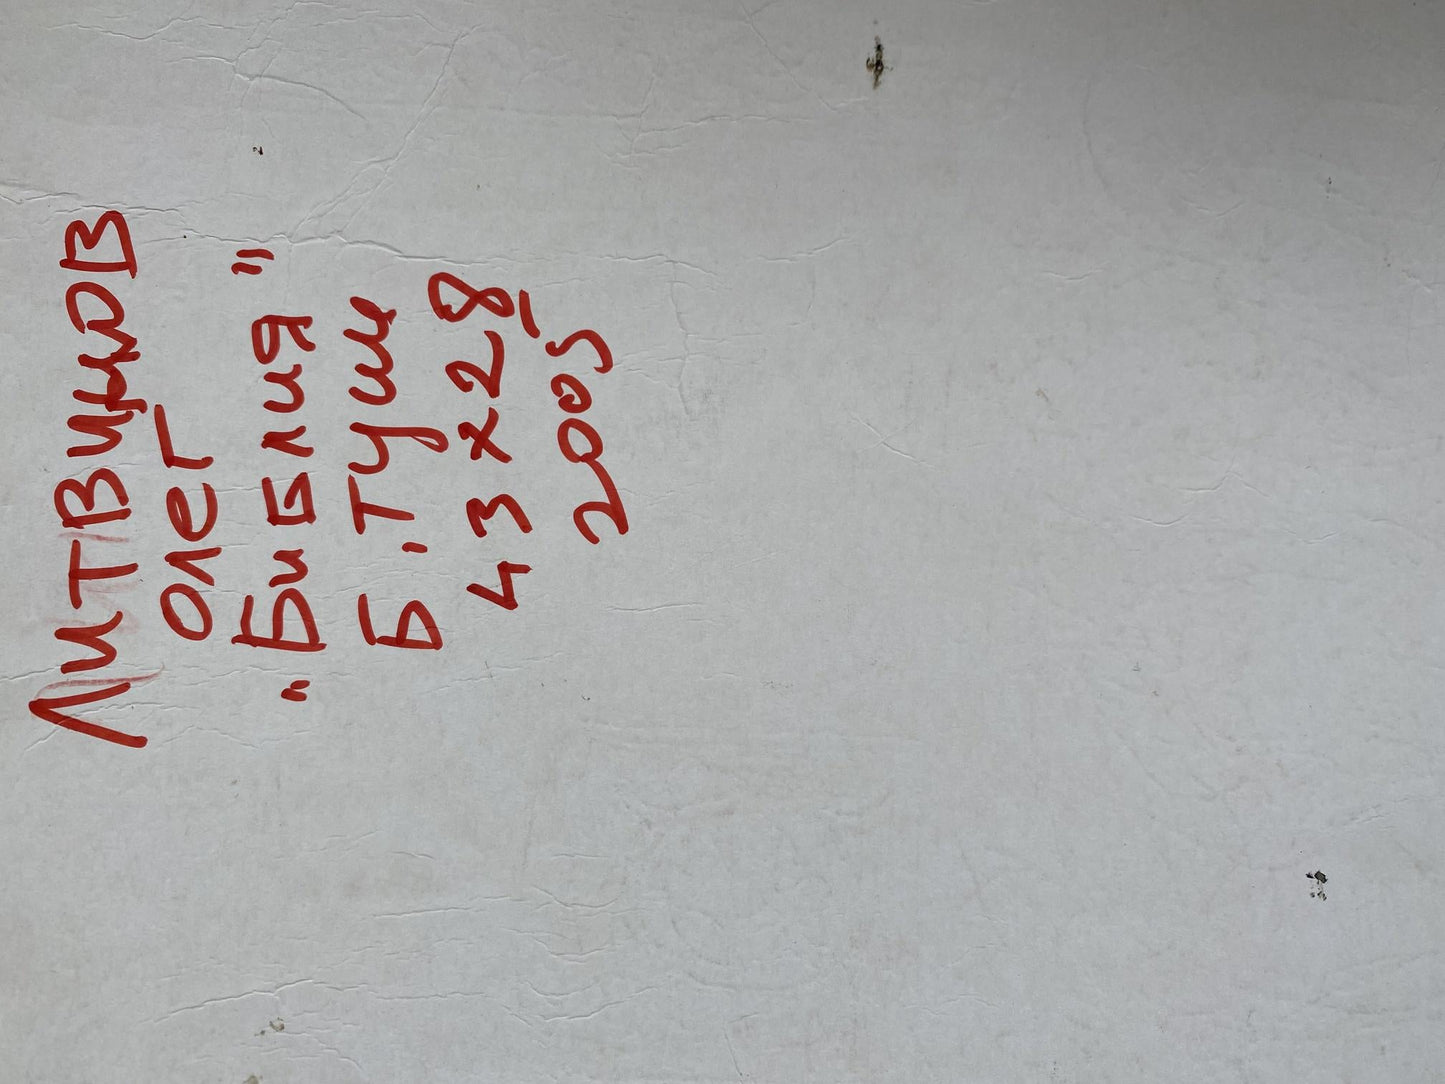 Литвинов
Олег
"Библия"
Б. Туш
43 x 28
2005